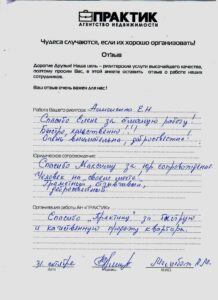 ПРАКТИК
АГЕНТСТВО НЕДВИЖИМОСТИ
Чудеса случаются, если их хорошо организовать!
Отзыв
Дорогие Друзья! Наша цель - риэлторские услуги высочайшего качества,
поэтому просим Вас, в этой анкете оставить отзыв о работе наших
сотрудников.
Ваш отзыв очень важен для нас!
Работа Вашего риелтора
Спасибо Елене за отличную работу!
Быстро, качественно!!!
Очень внимательно, добросовестно.
Юридическое сопровождение:
Спасибо Максиму за юр. сопровождение.
Человек на "своем месте".
Грамотный, отзывчивый,
доброжелательный.
Организация работы АН «ПРАКТИК»
Спасибо "Практику" за быструю
и качественную продажу квартиры.
31 октября
Дата
Подпись